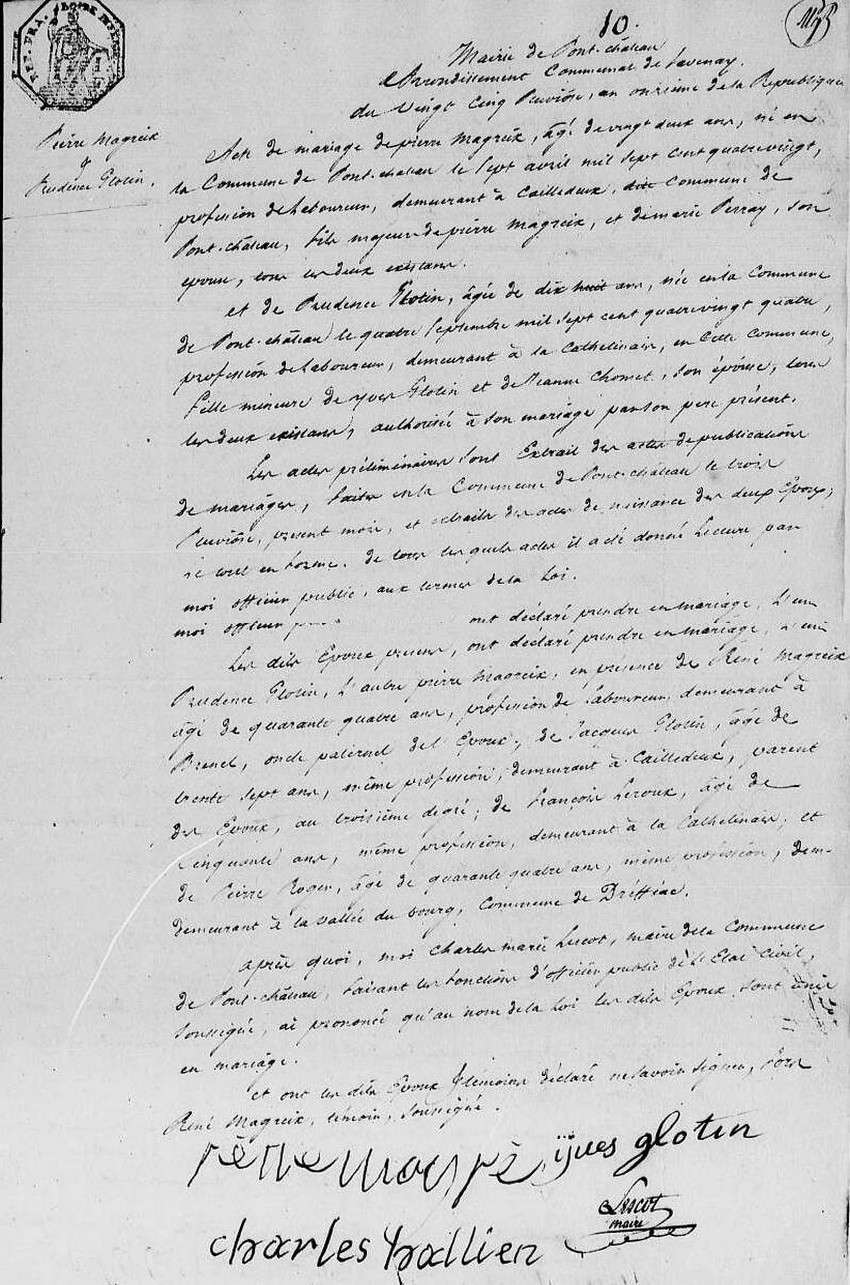 10.
Mairie de Pont-château
Arrondissement Communal de Savenay.
du Vingt Cinq Pluviôse, an onzieme de la Republique
Pierre Magreix
&
Prudence Glotin.
Acte de mariage de pierre Magreix, âgé de vingt deux ans, né en
la Commune de Pont-château le sept avril mil sept cent quatre vingt,
profession de Laboureur, demeurant à Cailledeux, dite Commune de
Pont-château, fils majeur de pierre Magreix, et de marie Perray, son
epouse, tous les deux existans.
et de Prudence Glotin, âgée de dix huit ans, née en la Commune
de Pont-château le quatre septembre mil sept cent quatrevingt quatre,
profession de Laboureur, demeurant à la Cathelinais, en Cette Commune,
fille mineure de yves Glotin et de Jeanne Chomet, son épouse, tous
les deux existans, authorisée à son mariage par son pere présent.
Les actes préliminaires sont Extrait des actes de publications
de mariages, faites en la Commune de Pont-château le trois
Pluviôse, present mois, et extraits des actes de naissance des deux Epoux;
le tout en forme. de tous lesquels actes il a été donné Lecture par
moi officier public, aux termes de la Loi.
moi officier
ont déclaré prendre en mariage, L'un
Les dits Epoux presens, ont déclaré prendre en mariage, L'un
Prudence Glotin, L'autre pierre Magreix, en presence de René Magreix
âgé de quarante quatre ans, profession de Laboureur, demeurant à
oncle paternel de L'Epoux; de Jacques Glotin, âgé de
trente sept ans, même profession, demeurant à Cailledeux, parent
des Epoux, au troisième degré; de François Leroux, âgé de
Cinquante ans, même profession, demeurant à la Cathelinais; et
de Pierre Roger, âgé de quarante quatre ans, même profession, dem-
demeurant à la vallée du bourg, Commune de Dréffeac.
après quoi, moi Charles marie Lescot, maire de la Commune
de Pont-château, faisant les fonctions d'officier public de L'Etat Civil,
soussigné, ai prononcé qu'au nom de la Loi les dits Epoux sont unis
en mariage.
et ont les dits Epoux & temoins déclaré ne savoir signer, fors
René Magreix, témoin, soussigné.
yves glotin
Lescot
maire
charles hallien